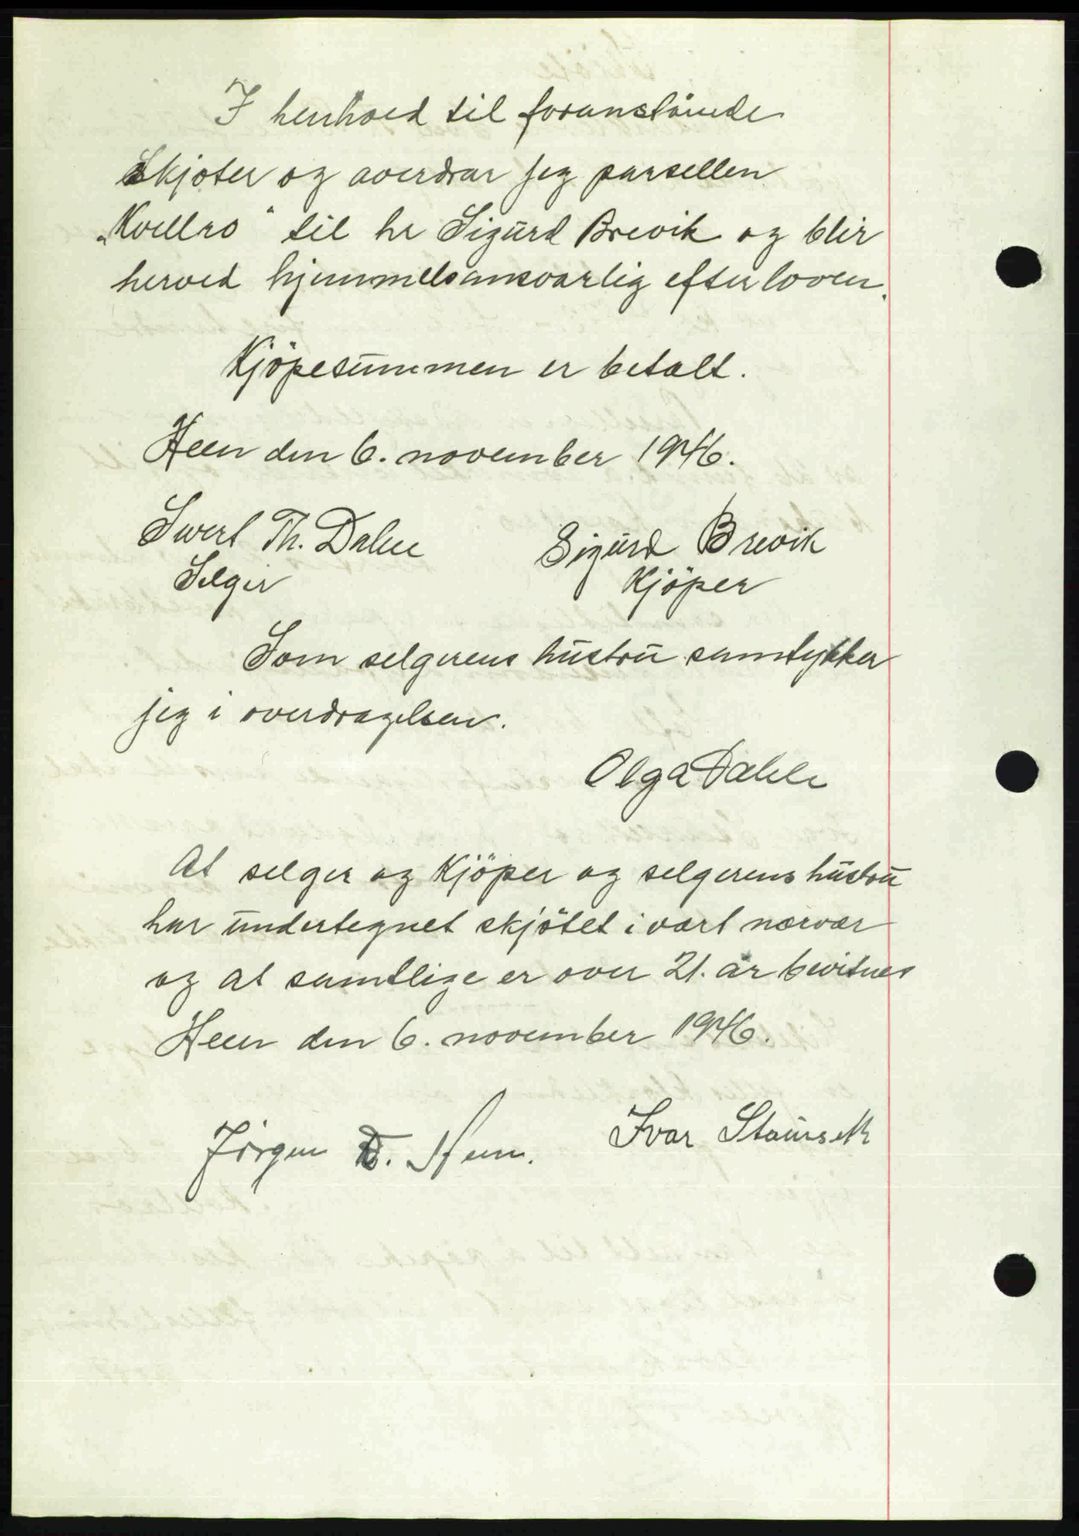 I henhold til foranstående
skjøter og overdrar jeg parsellen
"Kvellro" til hr Sigurd Brevik og blir
herved hjemmelsansvarlig efter loven.
Kjöpesummen er betalt.
Heen den 6. november 1946.
Sivert Th. Dahle Sigurd Brevik
Selger Kjöper
Som selgerens hustru samtykker
jeg i overdragelsen.
Olga Dahle
At selger og Kjöper og selgerens hustru
har undertegnet skjötet i vart nærvær
og at samtlige er over 21. år bevitnes
Heen den 6. november 1946.
Jörgen D. Heen. Ivar Staurseth